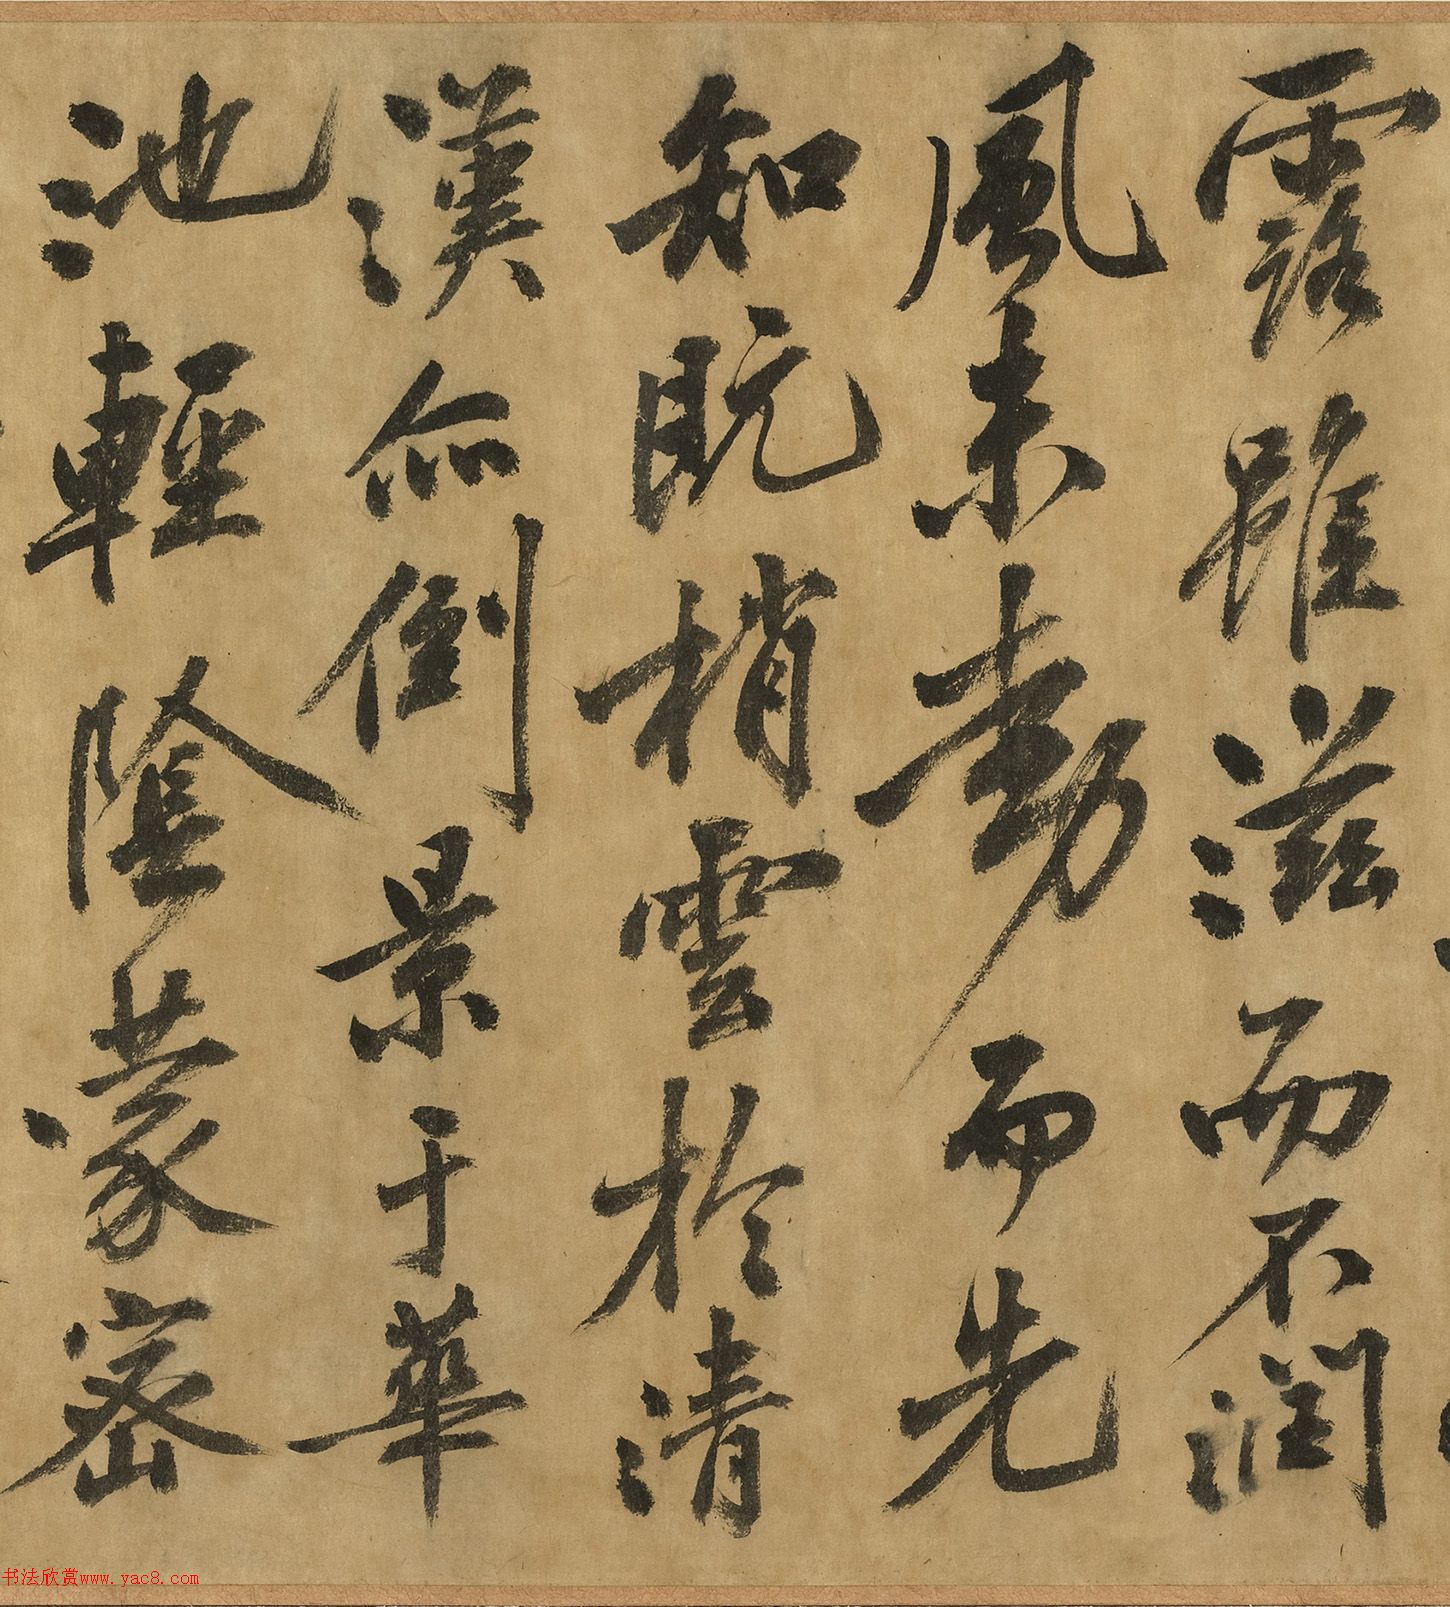 露雖滋而不润
風未動而先
知既梢雲於清
漢亦倒景于華
池輕陰蒙密
书法欣赏www.yac8.com